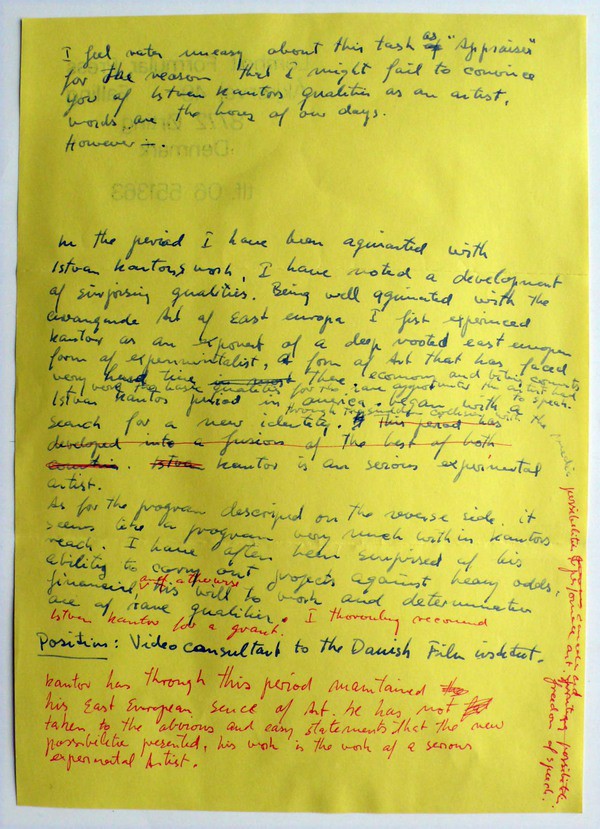 I feel rater uneasy about this task as "Appraiser"
for the reason that I might fail to convince
you of Istvan Kantors qualities as an artist,
words are the of our days.
However –.
Denmark
tlf. 06 651363
In the period I have been aquinted with
Istvan Kantors work, I have noted a development
of surprising qualities. Being well aquinated with the
avangarde Art of East europa I fist experinced
Kantor as an exponent of a deep rooted east europen
form of experimintalist, a form of Art that has faced
very hard time
very were the basic qualities for the the artist had to speak.
Istvan Kantors period in america. began with a
search for a new identity. this period has
through
developed into a fusion of the best of both
countries. Istvan Kantor is an serious exprimental
artist.
As for the program descriped on the reverse side. it
seems like a program very much with in Kantors
reach. I have often been surprised of his
ability to carry out projects against heavy odds,
financiel, and otherwise this will to work and determination
are of rare qualities. I thorouhly recomend
Istvan Kantor for a grant.
Position: Video consultant to the Danish Film institut.
Kantor has through this period maintained
his East European sence of Art. he has not
taken to the obvious and easy statements that the new
possibilitie presented, his work is the work of a serious
experimental Artist.
possibilities performance art,
freedom of speech.